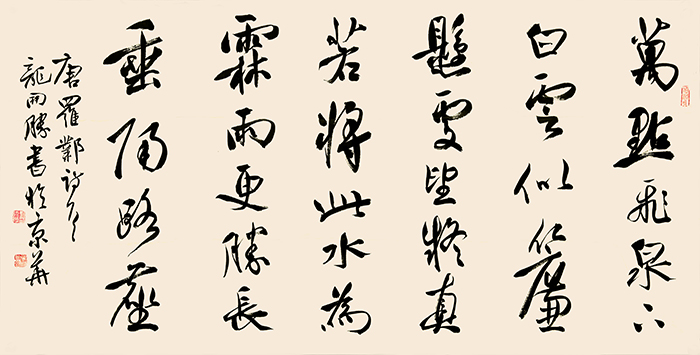 萬點飛泉下
白雲似簾
懸處望疑真
若將此水為
霖雨更勝長
垂隔路塵
唐羅鄴詩
龍雨勝書於京華